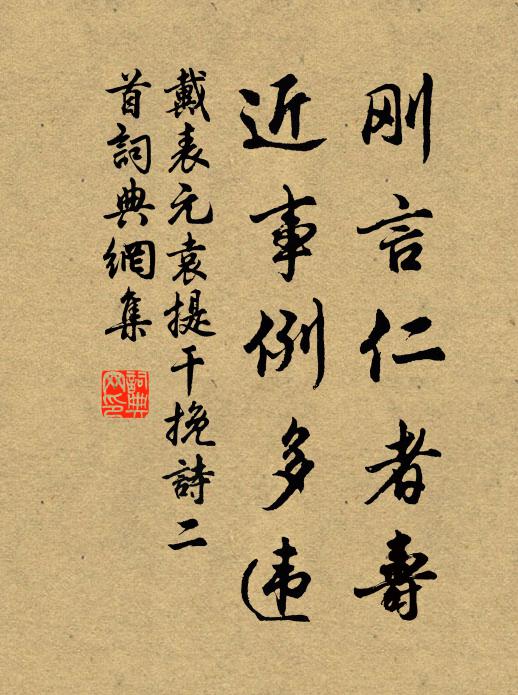 刚言仁者壽
近事例多违
戴表元袁提干挽詩二
首詞典網集
詞典網印